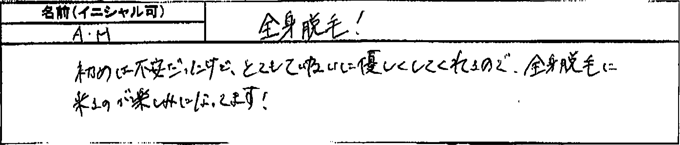 名前(イニシャル可)
A・H
全身脱毛!
初めは不安だったけど、とてもていねいに優しくしてくれるので、全身脱毛に
来るのが楽しみになってます!